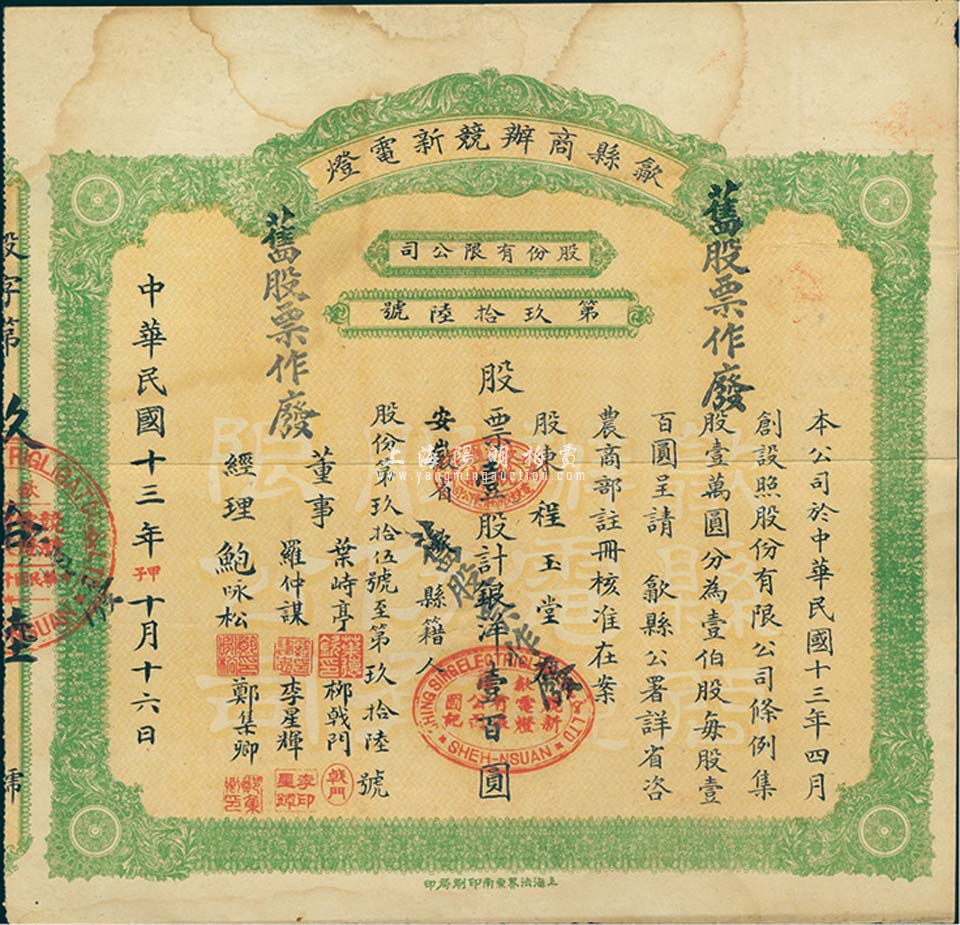 歙縣商辦競新電燈
股份有限公司
第玖拾陸號
本公司於中華民國十三年四月
創設照股份有限公司條例集
股壹萬圓分為壹伯股每股壹
百圓呈請 歙縣公署詳省咨
農商部註冊核准在案
股東程玉堂
股票壹股計銀洋壹百圓
安徽省 縣籍人
股份第玖拾伍號至第玖拾陸號
董事 葉峙亭 柳戟門
羅仲謀 李星輝
經理 鮑咏松 鄭集卿
中華民國十三年甲子十月十六日
舊股票作廢
舊股票作廢
舊股票作廢
股字第玖拾陸號
SHEH-NSUAN
戟門
李印星輝
上海陽明拍賣
www.yangmingauction.com
上海法界東南印刷局印